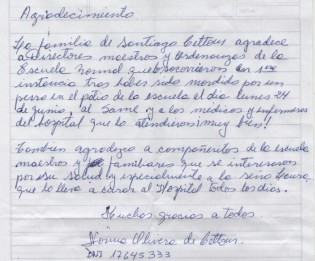 Agradecimiento
La familia de Santiago Cettour agradece
a directores maestros y Ordenanzas de la
Escuela Normal que socorrieron en 1era
instancia tras haber sido mordido por un
perro en el patio de la escuela el día lunes 24
de junio, al Same y a los medicos y enfermeros
del hospital que lo atendieron ¡muy bien!
Tambien agradezco a compañeritos de la escuela
maestros y familiares que se interesaron
por su salud y especialmente a la seño Laura
que lo lleva a curar al Hospital todos los días.
Muchas gracias a todos
Norma Olivera de Cettour
DNI 12645333